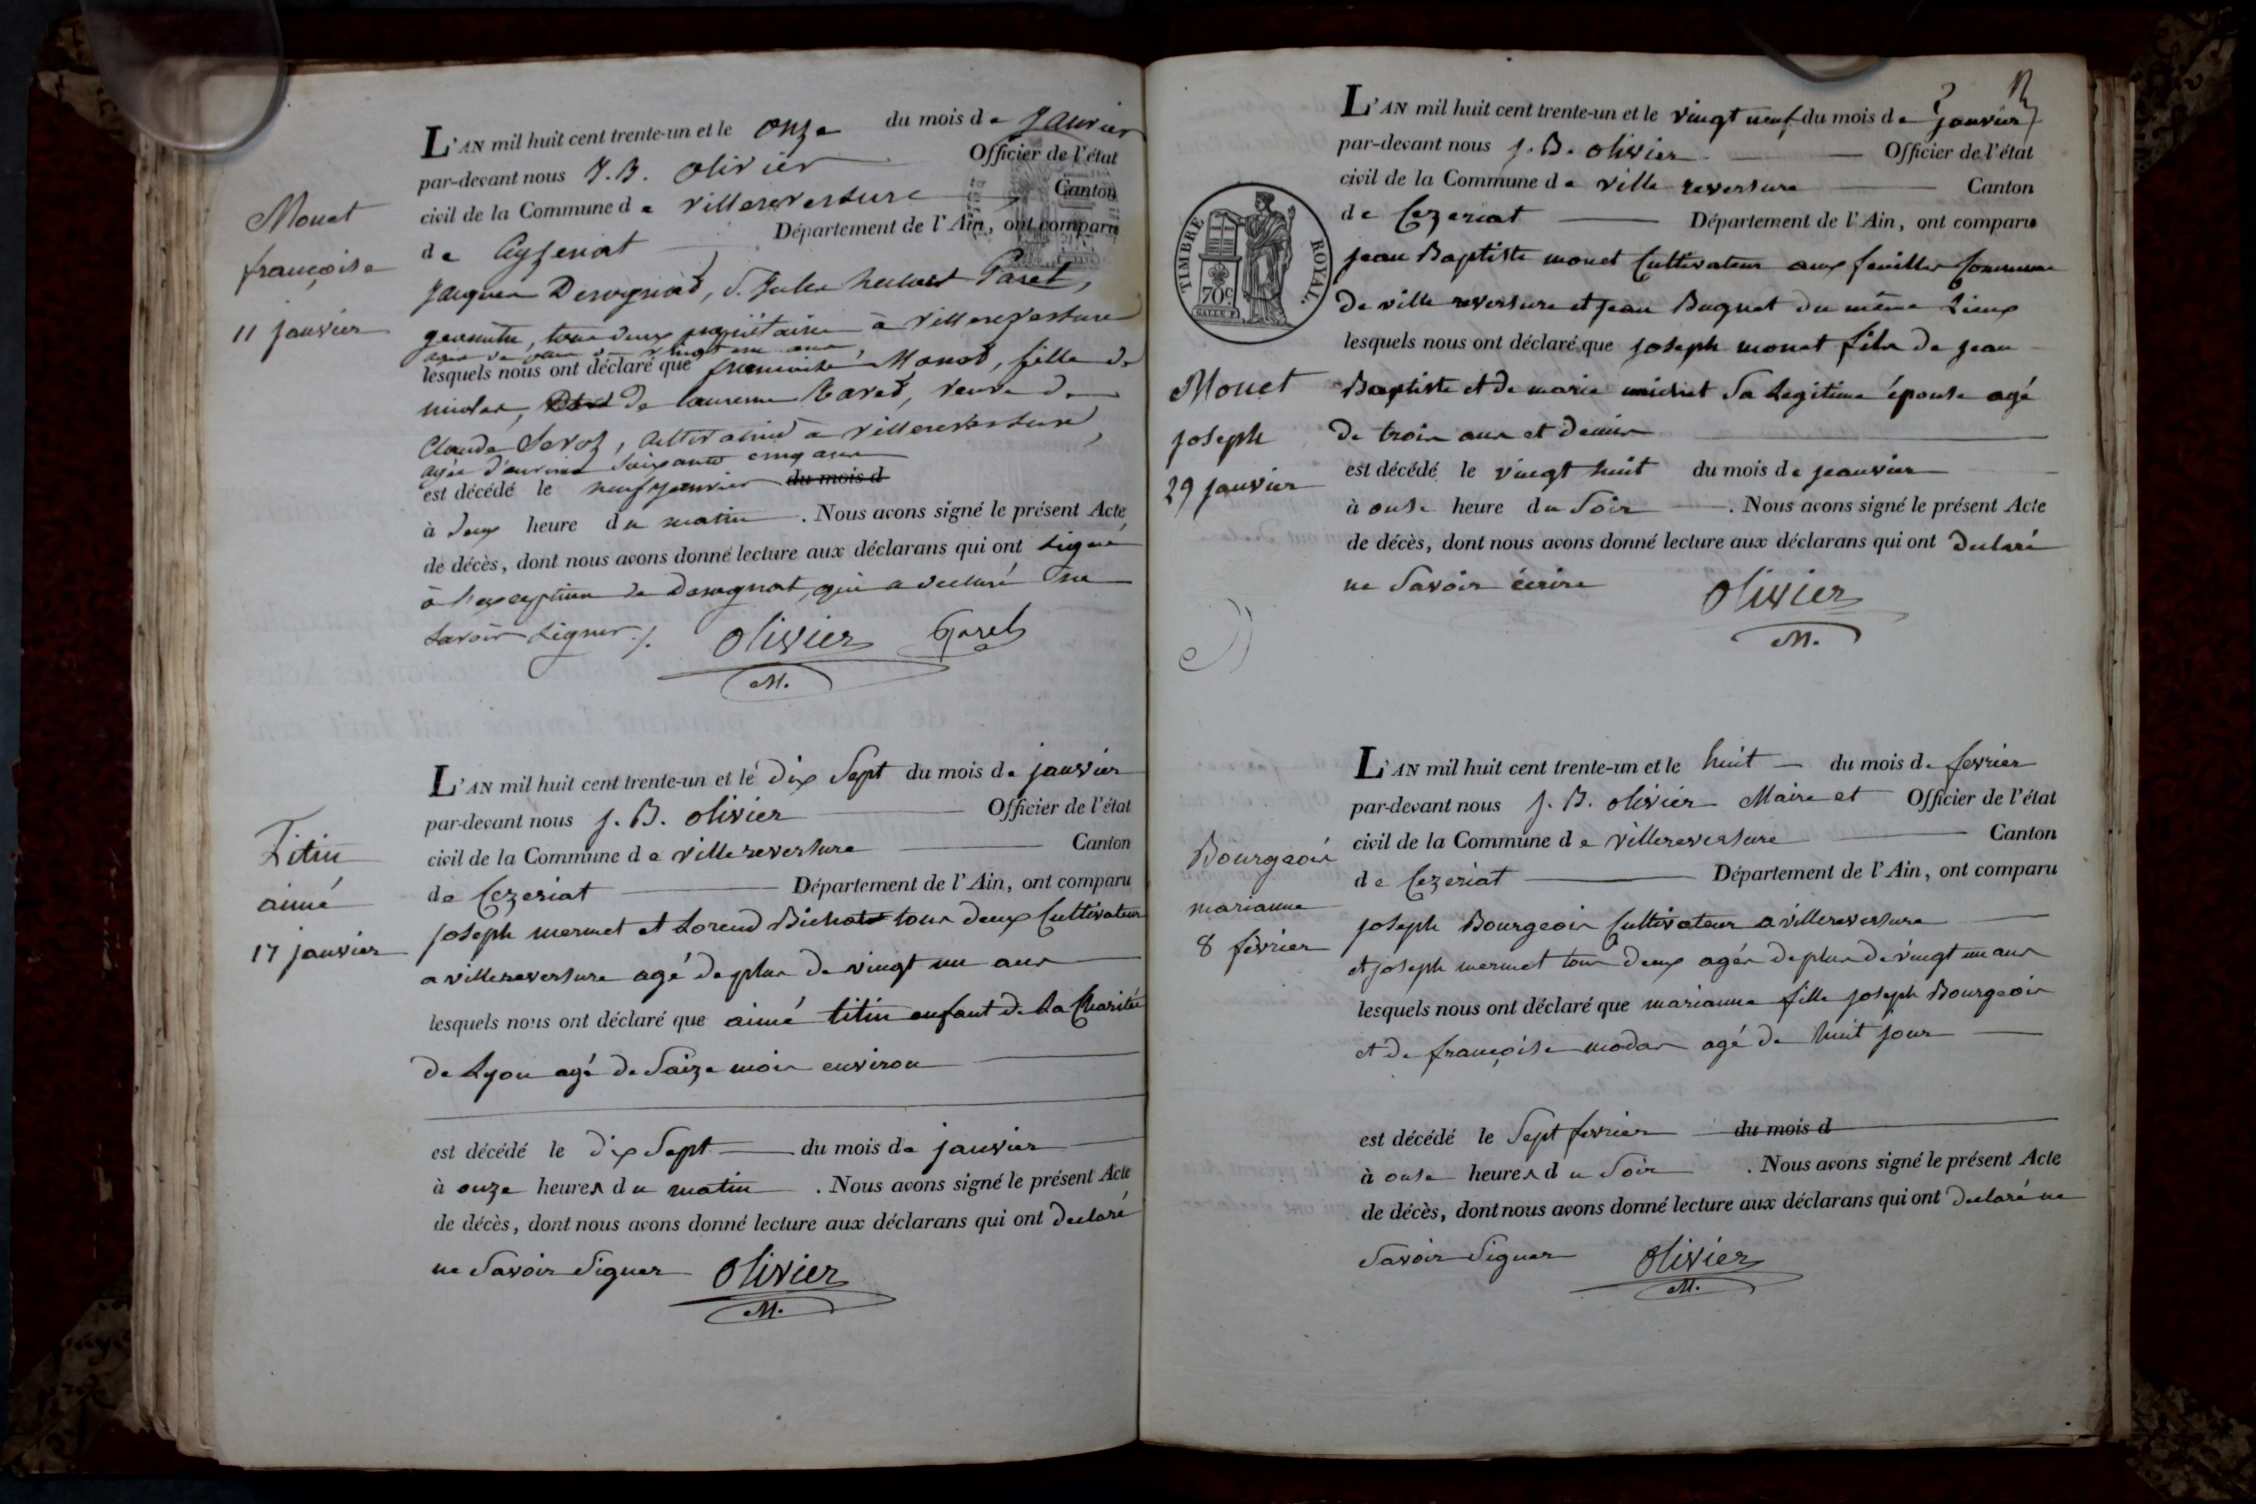 Monet
françoise
11 janvier
L'AN mil huit cent trente-un et le onze du mois de Janvier
par-devant nous J. B. Olivier Officier de l'état
civil de la Commune de villereversure Canton
de Cyzeriat Département de l'Ain, ont comparu
Jacques
tous deux propriétaires à villereversure
lesquels nous ont déclaré que françoise Monet, fille de
nicolas, de laurence veuve de
Claude à villereversure,
agée d'environ Soixante cinq ans
est décédé le neuf janvier du mois d
à deux heure du matin . Nous avons signé le présent Acte
de décès, dont nous avons donné lecture aux déclarans qui ont signé
à l'exception de Desognat, qui a declaré ne
savoir signer ./. Olivier
M.
Titin
aimé
17 janvier
L'AN mil huit cent trente-un et le dix Sept du mois de janvier
par-devant nous J. B. olivier Officier de l'état
civil de la Commune de villereversure Canton
de Cezeriat Département de l'Ain, ont comparu
joseph mermet et Lorend Bichat tous deux Cultivateur
a villereversure agé de plus de vingt un ans
lesquels nous ont déclaré que aimé titin enfant de La Charitée
de Lyon agé de Saize mois environ
est décédé le dix Sept du mois de janvier
à onze heures du matin . Nous avons signé le présent Acte
de décès, dont nous avons donné lecture aux déclarans qui ont declaré
ne Savoir Signer Olivier
M.
2
L'AN mil huit cent trente-un et le vingt neuf du mois de janvier
par-devant nous J. B. olivier Officier de l'état
civil de la Commune de ville reversure Canton
de Cezeriat Département de l'Ain, ont comparu
TIMBRE ROYAL.
70c
jean Baptiste monet Cultivateur aux feuilles Commune
de ville reversure et jean Buguet du même Lieux
lesquels nous ont déclaré que joseph monet fils de jean
Monet
joseph
29 janvier
Baptiste et de marie michet Sa Legitime épouse agé
de trois ans et demis
est décédé le vingt huit du mois de jeanvier
à onse heure du Soir . Nous avons signé le présent Acte
de décès, dont nous avons donné lecture aux déclarans qui ont declaré
ne Savoir écrire Olivier
M.
Bourgeois
marianne
8 février
L'AN mil huit cent trente-un et le huit du mois de fevrier
par-devant nous J. B. olivier Maire et Officier de l'état
civil de la Commune de villereversure Canton
de Cezeriat Département de l'Ain, ont comparu
joseph Bourgeois Cultivateur a villereversure
et joseph mermet tous deux agés de plus de vingt un ans
lesquels nous ont déclaré que marianne fille joseph Bourgeois
et de françoise modas agé de huit jour
est décédé le Sept fevrier du mois d
à onse heures du Soir . Nous avons signé le présent Acte
de décès, dont nous avons donné lecture aux déclarans qui ont declaré ne
Savoir Signer Olivier
M.